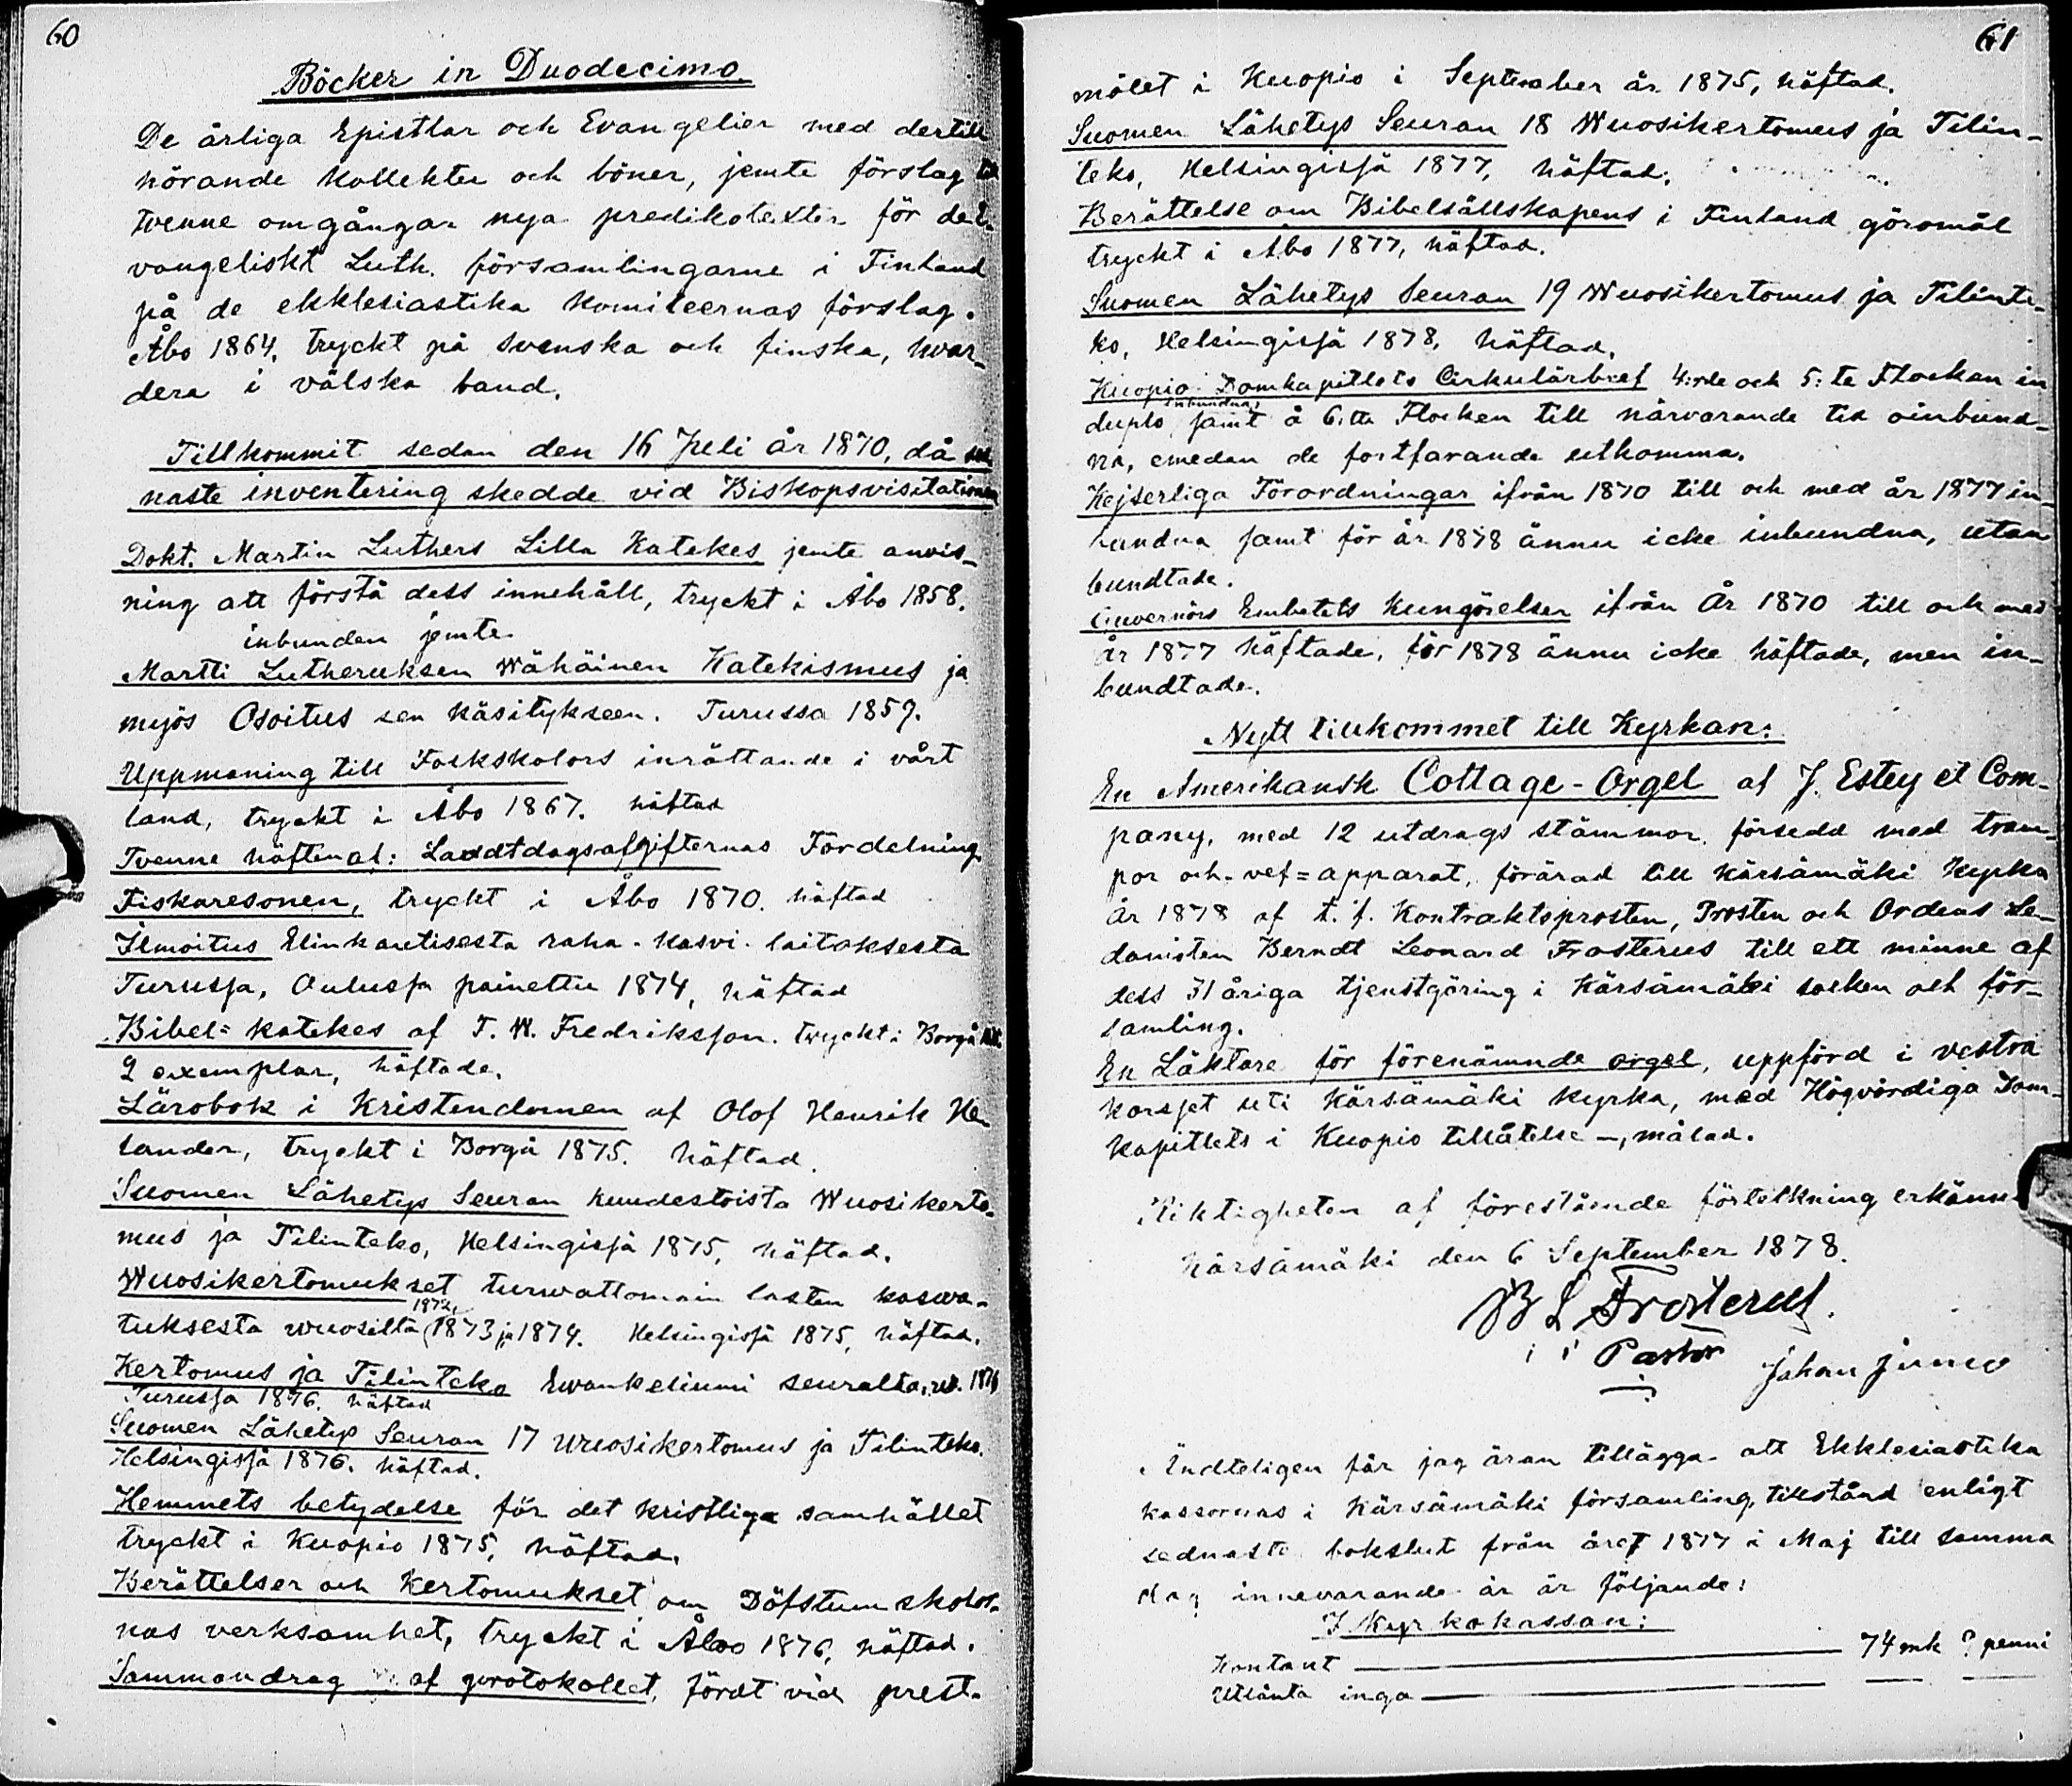 60
Böcker in Duodecimo.
De årliga Epistlar och Evangelier med dertill
hörande kollekter och böner, jemte förslag till
tvenne omgångar nya predikotexter för de E-
vangeliskt Luth. församlingarne i Finland
på de ekklesiastika komiteernas förslag.
Åbo 1864, tryckt på svenska och finska, hvar-
dera i välska band.
Tillkommit sedan den 16 Juli år 1870, då se-
naste inventering skedde vid Biskopsvisitationen
Dokt. Martin Luthers Lilla Katekes jemte anvis-
ning att förstå dess innehåll, tryckt i Åbo 1858.
inbunden jemte
Martti Lutheruksen Wähäinen Katekismus ja
myös Osoitus sen käsitykseen. Turussa 1857.
Uppmaning till Folkskolors inrättande i vårt
land, tryckt i Åbo 1867. häftad
Tvenne häften af: Landtdagsafgifternas Fördelning.
Fiskaresonen, tryckt i Åbo 1870. häftad
Ilmoitus Elinkautisesta raha-kasvi-laitoksesta
Turusja, Oulusja painettu 1874, häftad
Bibel=katekes af T. W. Fredriksson. tryckt i Borgå
2 exemplar, häftade.
Lärobok i Kristendomen af Olof Henrik He-
lander, tryckt i Borgå 1875. häftad.
Suomen Lähetys Seuran kuudestoista Wuosikerto-
mus ja Tilinteko, Helsingisjä 1875, häftad.
Wuosikertomukset turwattomain lasten kaswa-
tuksesta wuosilta 1872, 1873 ja 1874. Helsingisjä 1875, häftad.
Kertomus ja Tilinteko Ewankeliumi seuralta, w. 1876
Turusja 1876. häftad
Suomen Lähetys Seuran 17 Wuosikertomus ja Tilinteko.
Helsingisjä 1876. häftad.
Hemmets betydelse för det kristliga samhället
tryckt i Kuopio 1875, häftad.
Berättelser och Kertomukset om Döfstumskolor-
nas verksamhet, tryckt i Åbo 1876, häftad.
Sammandrag af protokollet, fördt vid prest-
61
mötet i Kuopio i September år 1875, häftad.
Suomen Lähetys Seuran 18 Wuosikertomus ja Tilin-
teko, Helsingisjä 1877, häftad.
Berättelse om Bibelsällskapens i Finland göromål
tryckt i Åbo 1877, häftad.
Suomen Lähetys Seuran 19 Wuosikertomus ja Tilinte-
ko, Helsingisjä 1878, häftad.
Kuopio Domkapitlets Cirkulärbref 4:rde och 5:te Flockan in
duplo inbundna, samt å 6:tte Flocken till närvarande tid oinbund-
na, emedan de fortfarande utkomma.
Kejserliga Förordningar ifrån 1870 till och med år 1877 in-
bundna samt för år 1878 ännu icke inbundna, utan
bundtade.
Guvernörs Embetets Kungörelser ifrån År 1870 till och med
År 1877 häftade, för 1878 ännu icke häftade, men in-
bundtade.
Nytt tillkommet till Kyrkan:
En Amerikansk Cottage-Orgel af J. Estey et Com-
pany, med 12 utdrags stämmor, försedd med tram-
por och vef=apparat, förärad till Kärsämäki Kyrka
år 1878 af t. f. Kontraktsprosten, Prosten och Ordens Le-
damoten Berndt Leonard Frosterus till ett minne af
dess 31 åriga tjenstgöring i Kärsämäki socken och för-
samling.
En Läktare för förenämnde orgel, uppförd i vestra
korsjet uti Kärsämäki kyrka, med Högvördiga Dom-
kapitlets i Kuopio tillåtelse –, målad.
Riktigheten af förestående förteckning erkännes
Kärsämäki den 6 September 1878.
B L Frosterus.
Pastor
Johan Junno
Ändteligen får jag äran tillägga att Ekklesiastika
kassornas i Kärsämäki församling, tillstånd enligt
sednaste bokslut från året 1877 i Maj till samma
dag innevarande år är följande:
I Kyrkokassan:
Kontant — 74 mk ? penni
Utlånta inga —